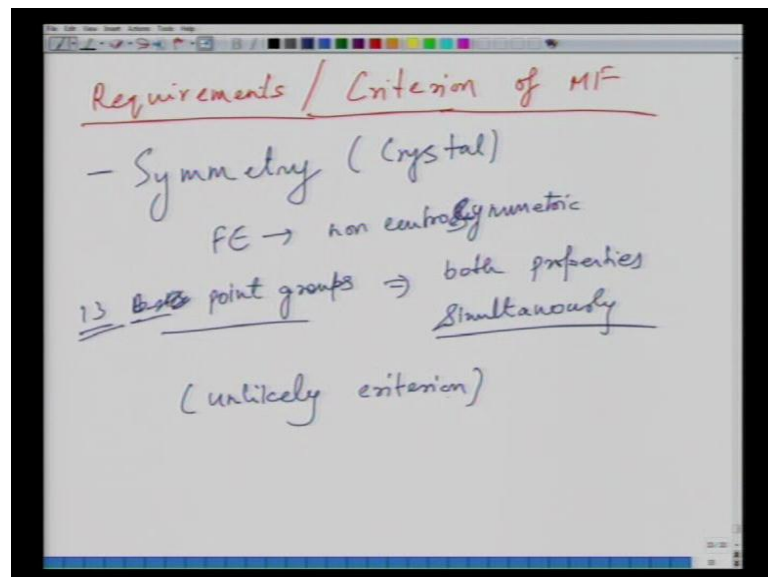 File Edit View Insert Actions Tools Help
Requirements / Criterion of MF
- Symmetry (Crystal)
FE → non centrosymmetric
13 point groups ⇒ both properties
Simultanously
(unlikely criterion)